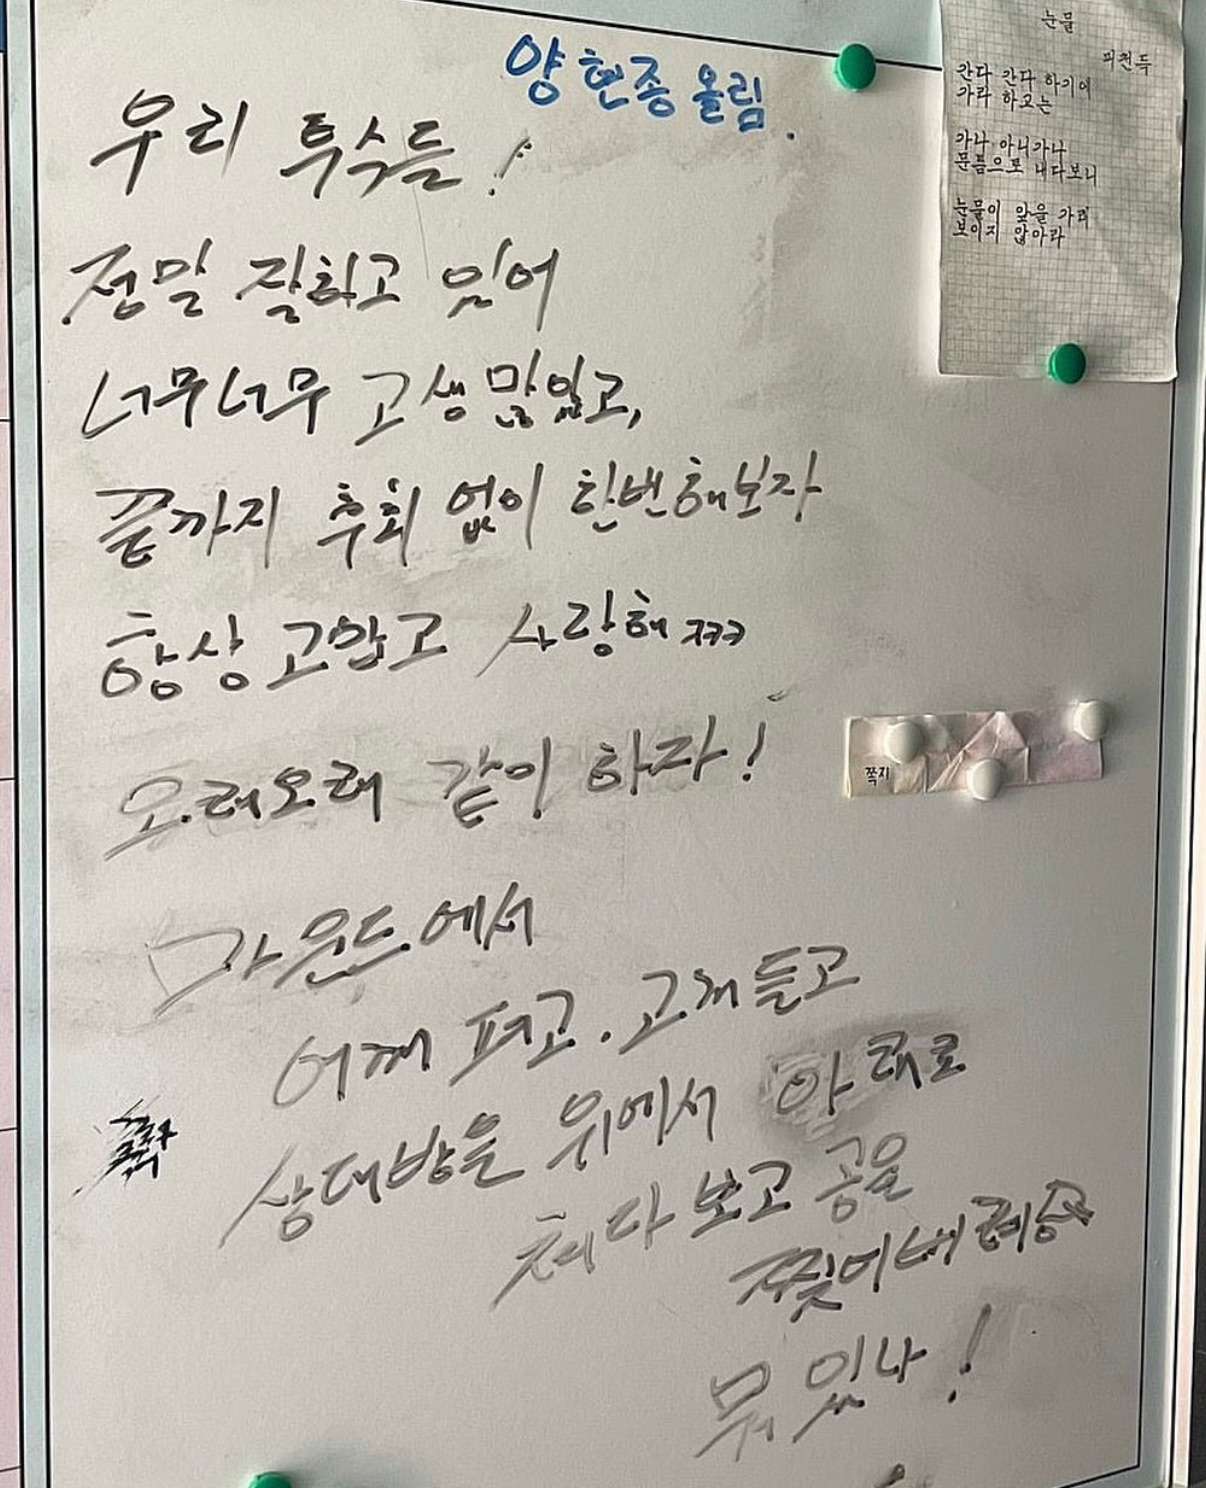 양현종 올림.
우리 투수들!
정말 잘하고 있어
너무너무 고생 많았고,
끝까지 후회 없이 한번해보자
항상 고맙고 사랑해 ㅋㅋㅋ
오래오래 같이 하자!
마운드에서
어깨 펴고. 고개 들고
상대방을 위에서 아래로
쳐다 보고 공을
찢어버려
뭐 있나!
눈물
피천득
간다 간다 하기에
가라 하고는
가나 아니가나
문틈으로 내다보니
눈물이 앞을 가려
보이지 않아라
쪽지